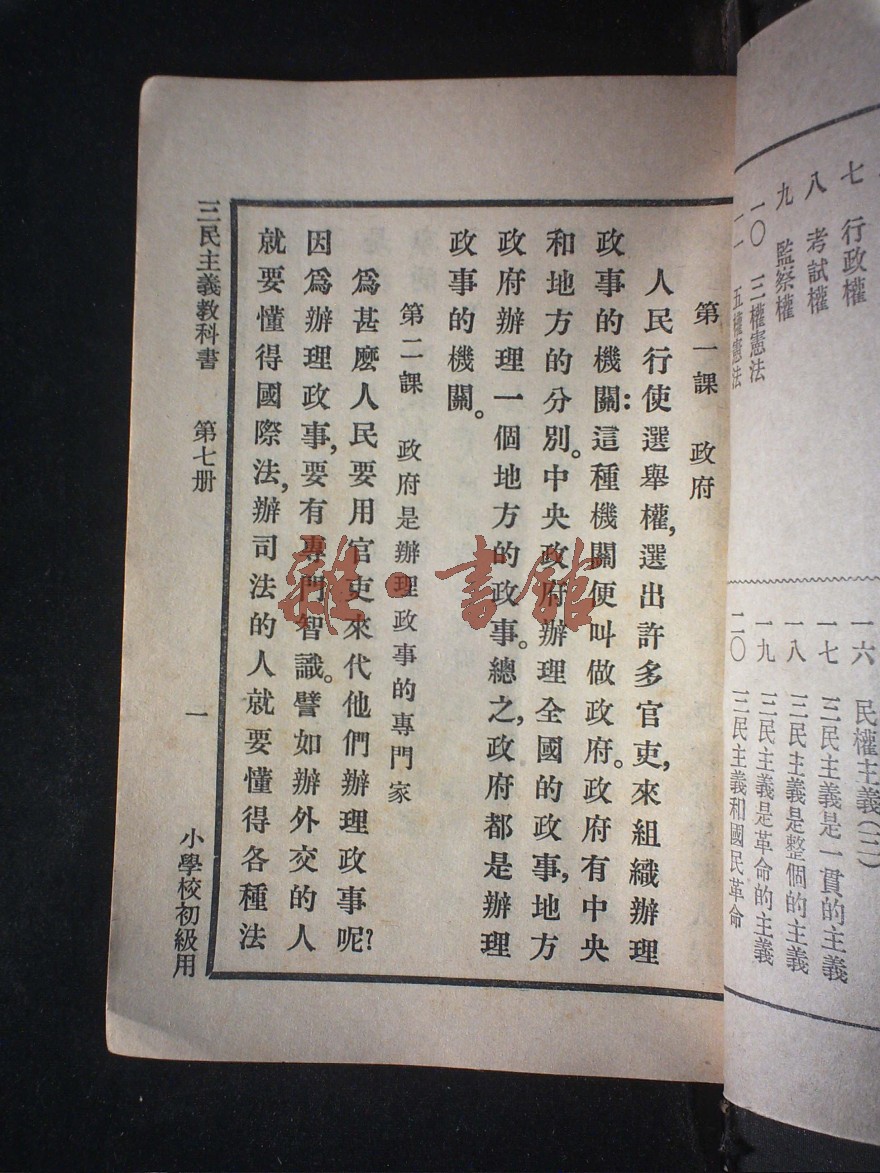 七 行政權
八 考試權
九 監察權
一〇 三權憲法
一一 五權憲法
一六 民權主義(三)
一七 三民主義是一貫的主義
一八 三民主義是整個的主義
一九 三民主義是革命的主義
二〇 三民主義和國民革命
第一課 政府
人民行使選舉權,選出許多官吏,來組織辦理
政事的機關:這種機關便叫做政府。政府有中央
和地方的分別。中央政府辦理全國的政事,地方
政府辦理一個地方的政事。總之,政府都是辦理
政事的機關。
第二課 政府是辦理政事的專門家
爲甚麽人民要用官吏來代他們辦理政事呢?
因爲辦理政事,要有專門智識。譬如辦外交的人
就要懂得國際法,辦司法的人就要懂得各種法
三民主義教科書 第七册 一 小學校初級用
雜·書館